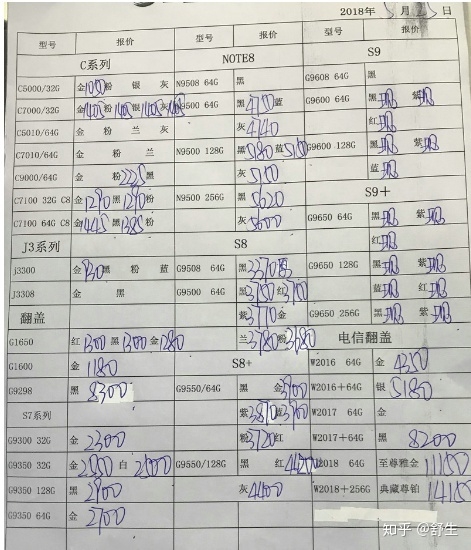 2018年 5月25日
型号 报价 型号 报价 型号 报价
C系列 NOTE8 S9
C5000/32G 金1050粉 银 灰 N9508 64G 黑 G9608 64G 黑
C7000/32G 金1405粉1405银1405灰1405 N9500 64G 黑4150蓝 G9600 64G 黑现 紫现
C5010/64G 金 粉 兰 灰4140 红现
C7010/64G 金 粉 兰 N9500 128G 黑5180蓝5150 G9600 128G 黑现 紫现
C9000/64G 金 粉2225黑 灰5100 蓝现
C7100 32G C8 金1290黑1290粉 N9500 256G 黑5620 S9+
C7100 64G C8 金1445黑1385粉 灰5600 G9650 64G 黑现 紫现
J3系列 S8 红现
J3300 金930黑 粉 蓝 G9508 64G 黑3370 G9650 128G 黑现 紫现
J3308 金 黑 G9500 64G 黑3750红3700 蓝现 红现
翻盖 紫3710金 G9650 256G 黑现 紫现
G1650 红1300黑1300金1280 兰3780粉3680 电信翻盖
G1600 金1180 S8+ W2016 64G 金4350
G9298 黑8300 G9550/64G 黑 金3900 W2016+64G 银5180
S7系列 紫3870蓝3900 W2017 64G 金
G9300 32G 金2300 粉3720红 W2017+64G 黑8200
G9350 32G 金2850白2500 G9550/128G 黑 红4420 W2018 64G 至尊雅金11150
G9350 128G 黑2900 灰4400 W2018+256G 典藏尊铂14150
G9350 64G 金2700
知乎 @舒生